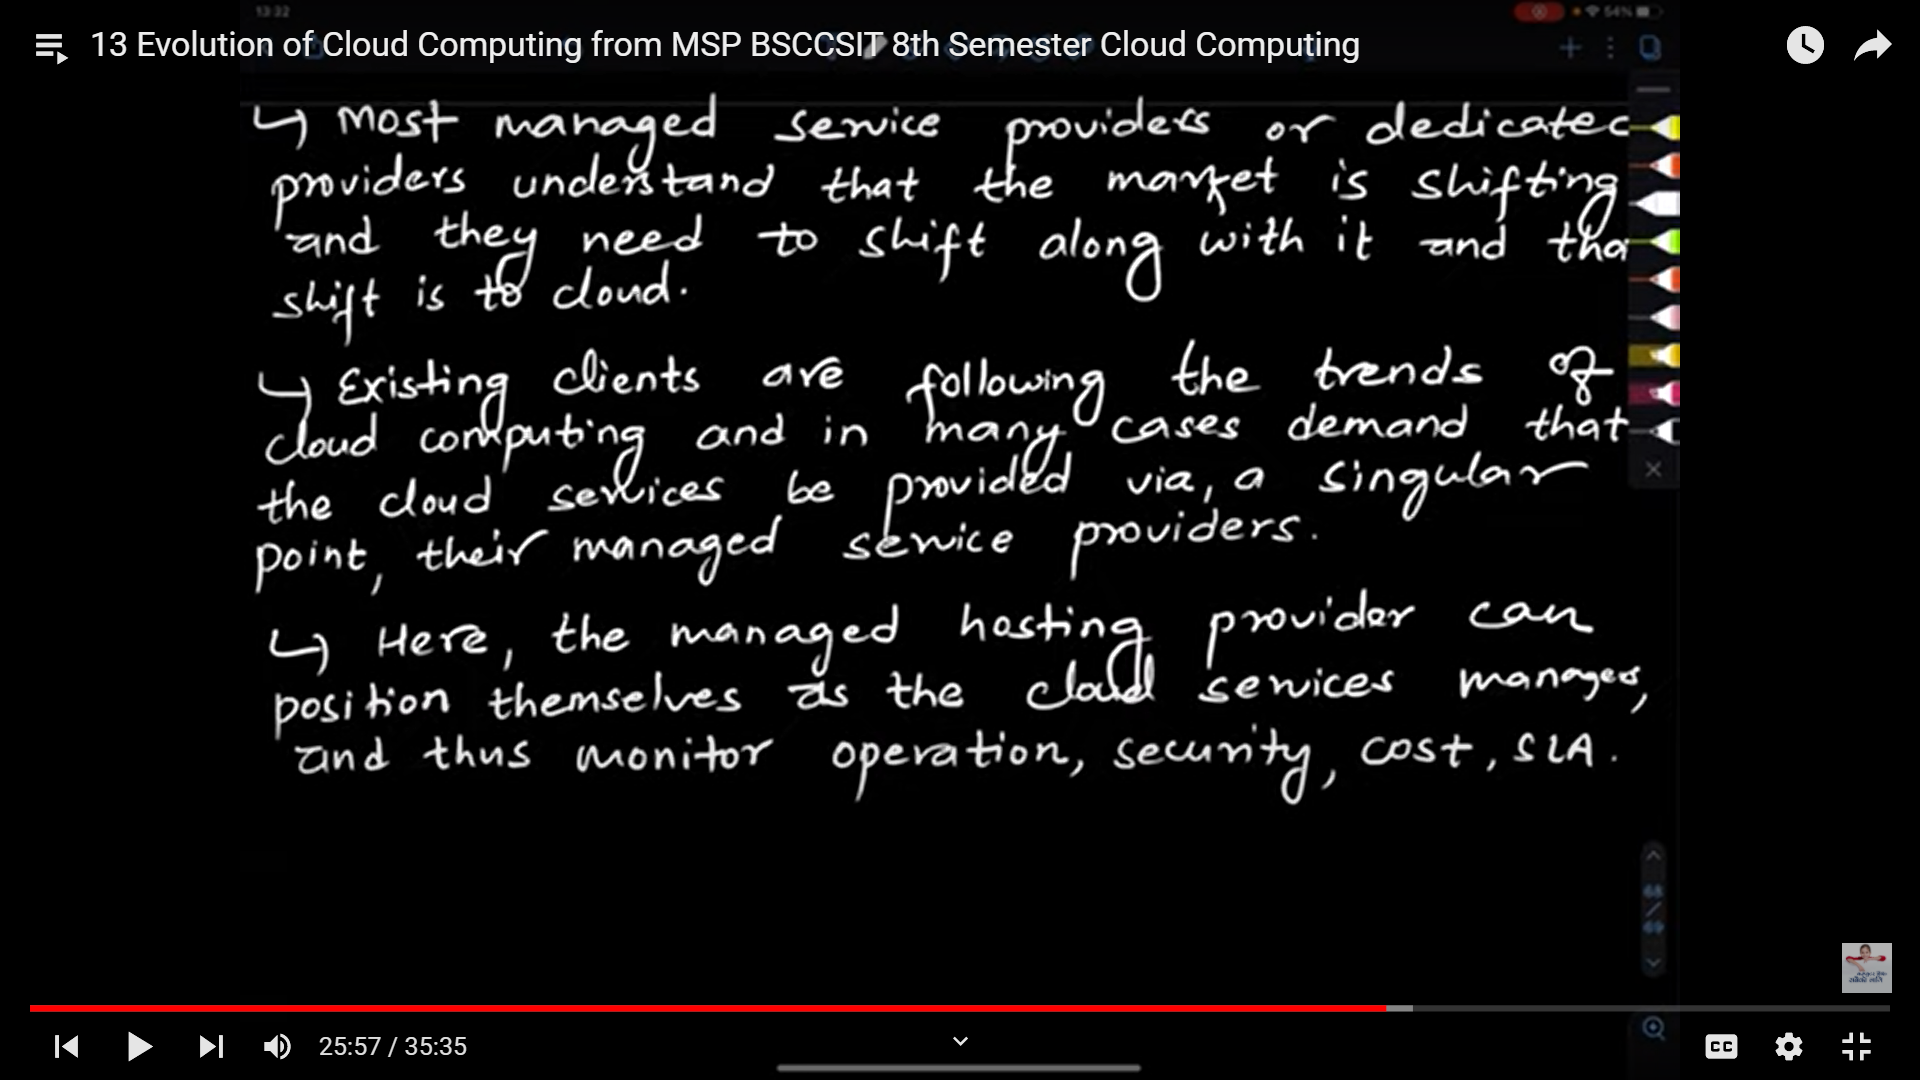 13:32
54%
13 Evolution of Cloud Computing from MSP BSCCSIT 8th Semester Cloud Computing
↳ Most managed service providers or dedicated
providers understand that the market is shifting
and they need to shift along with it and tha
shift is to cloud.
↳ Existing clients are following the trends of
cloud computing and in many cases demand that
the cloud services be provided via, a singular
point, their managed service providers.
↳ Here, the managed hosting provider can
position themselves as the cloud services manager,
and thus monitor operation, security, cost, SLA.
68
/
69
25:57 / 35:35
CC